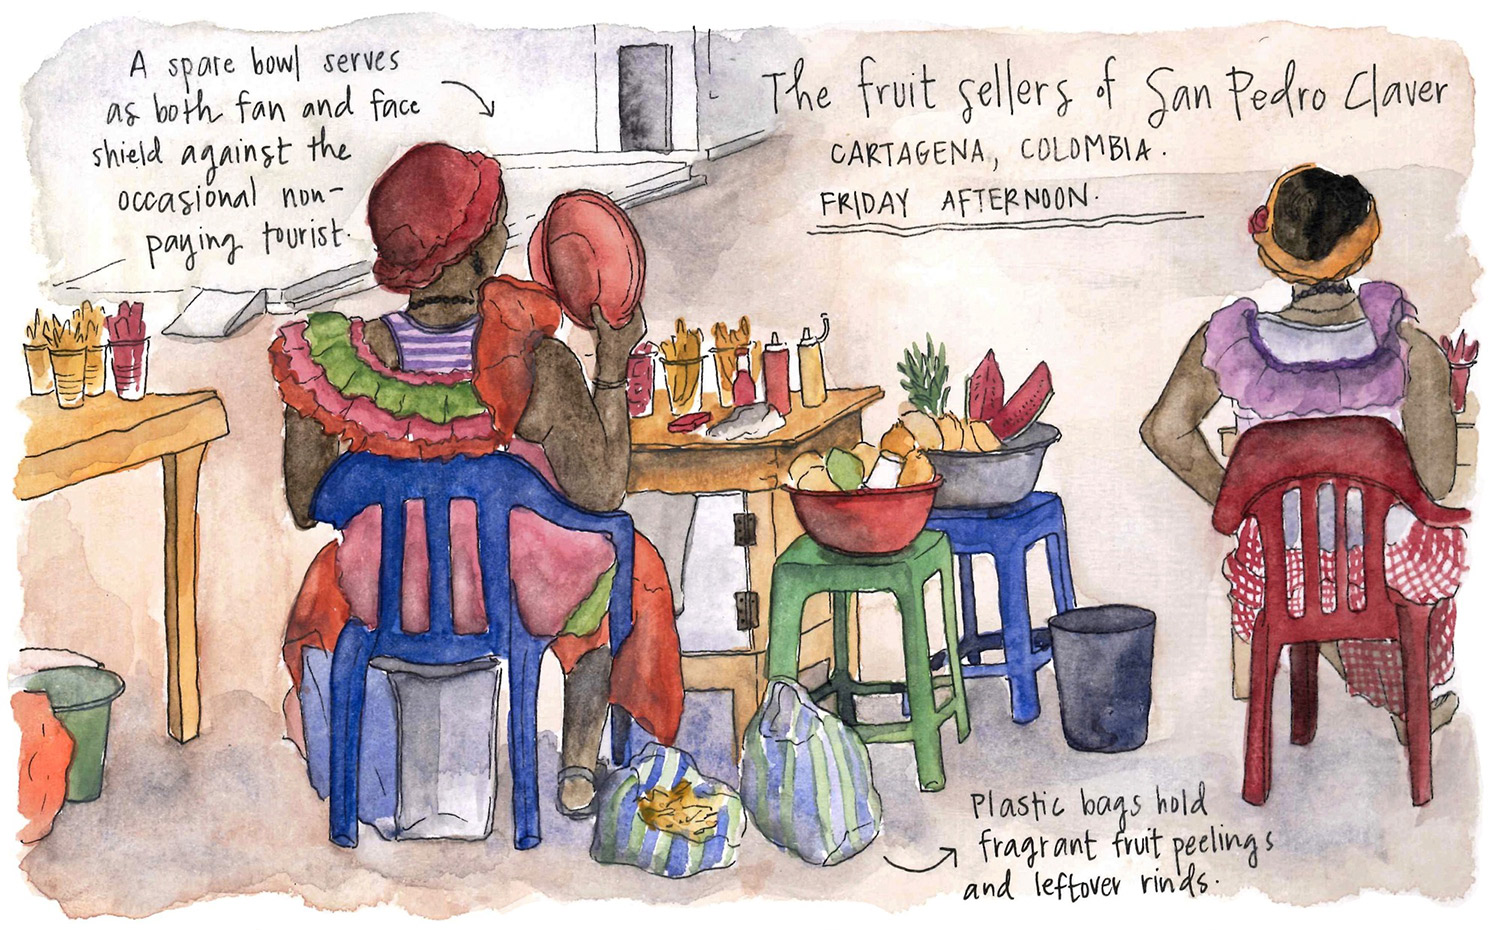 A spare bowl serves
as both fan and face
shield against the
occasional non-
paying tourist.
The fruit sellers of San Pedro Claver
CARTAGENA, COLOMBIA.
FRIDAY AFTERNOON.
Plastic bags hold
fragrant fruit peelings
and leftover rinds.